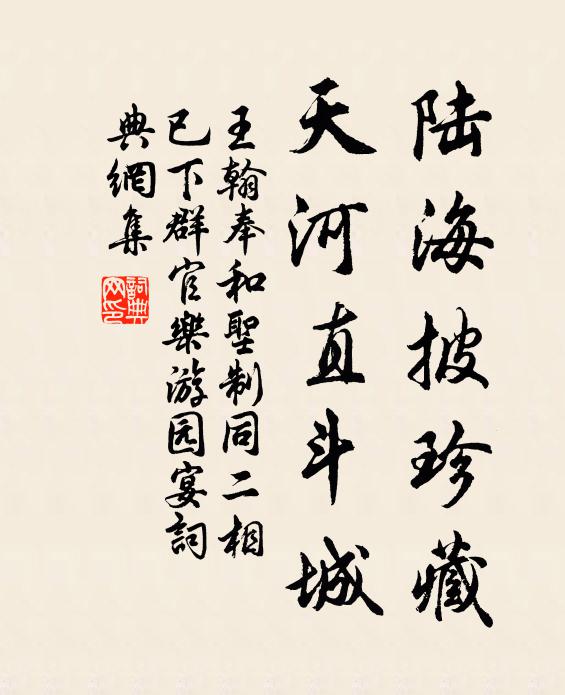 陆海披珍藏
天河直斗城
王翰奉和聖制同二相
已下群官樂游园宴詞
典網集
詞典网印